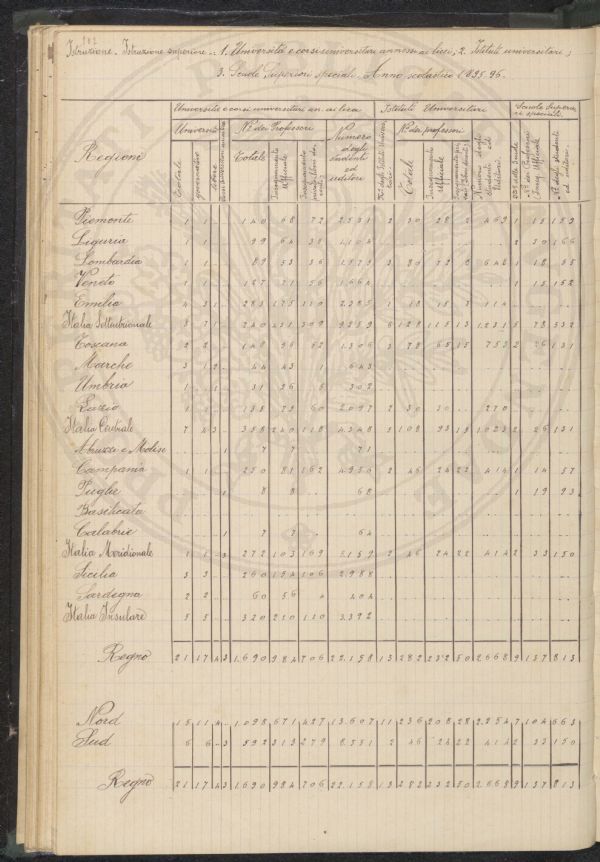 Istruzione. Istruzione superiore.: 1. Università e corsi universitari annessi ai licei; 2. Istituti universitari;
3. Scuole Superiori speciali. Anno scolastico 1895-96.
Università e corsi universitari an. ai licei Istituti Universitari Scuole Superiori speciali
Regioni
Università No. dei Professori Numero degli studenti ed uditori No. dei professori
Totale governative libere Totale Insegnamento ufficiale Totale Insegnamento ufficiale Numero degli studenti ed uditori No. delle Scuole No. dei Professori No. degli studenti ed uditori
Piemonte 1 1 .. .. 140 68 72 2531 2 30 28 2 469 1 15 153
Liguria 1 1 .. .. 99 64 35 1.104 .. .. .. .. .. 2 30 166
Lombardia 1 1 .. .. 89 53 36 1.573 3 80 72 8 648 1 18 35
Veneto 1 1 .. .. 127 71 56 1.664 .. .. .. .. .. 1 15 152
Emilia 4 3 1 .. 285 175 110 2385 1 18 15 3 114 .. .. ..
Italia Settentrionale 8 7 1 .. 740 431 309 9259 6 128 115 13 1.231 5 78 532
Toscana 2 2 .. .. 148 96 52 1.306 3 78 65 13 753 2 26 131
Marche 3 1 2 .. 44 43 1 643 .. .. .. .. .. .. .. ..
Umbria 1 .. 1 .. 31 26 5 302 .. .. .. .. .. .. .. ..
Lazio 1 1 .. .. 135 75 60 2097 2 30 30 .. 270 .. .. ..
Italia Centrale 7 4 3 .. 358 240 118 4348 5 108 93 15 1023 2 26 131
Abruzzi e Molise .. .. .. 1 7 7 .. 71 .. .. .. .. .. .. .. ..
Campania 1 1 .. .. 250 81 169 4956 2 46 24 22 414 1 14 57
Puglie .. .. .. 1 8 8 .. 68 .. .. .. .. .. 1 19 93
Basilicata .. .. .. .. .. .. .. .. .. .. .. .. .. .. .. ..
Calabrie .. .. .. 1 7 7 .. 64 .. .. .. .. .. .. .. ..
Italia Meridionale 1 1 .. 3 272 103 169 5.159 2 46 24 22 414 2 33 150
Sicilia 3 3 .. .. 260 154 106 2.988 .. .. .. .. .. .. .. ..
Sardegna 2 2 .. .. 60 56 4 404 .. .. .. .. .. .. .. ..
Italia Insulare 5 5 .. .. 320 210 110 3.392 .. .. .. .. .. .. .. ..
Regno 21 17 4 3 1.690 984 706 22.158 13 282 232 50 2668 9 137 813
Nord 15 11 4 .. 1.098 671 427 13.607 11 236 208 28 2.254 7 104 663
Sud 6 6 .. 3 592 313 279 8.551 2 46 24 22 414 2 33 150
Regno 21 17 4 3 1690 984 706 22.158 13 282 232 50 2668 9 137 813